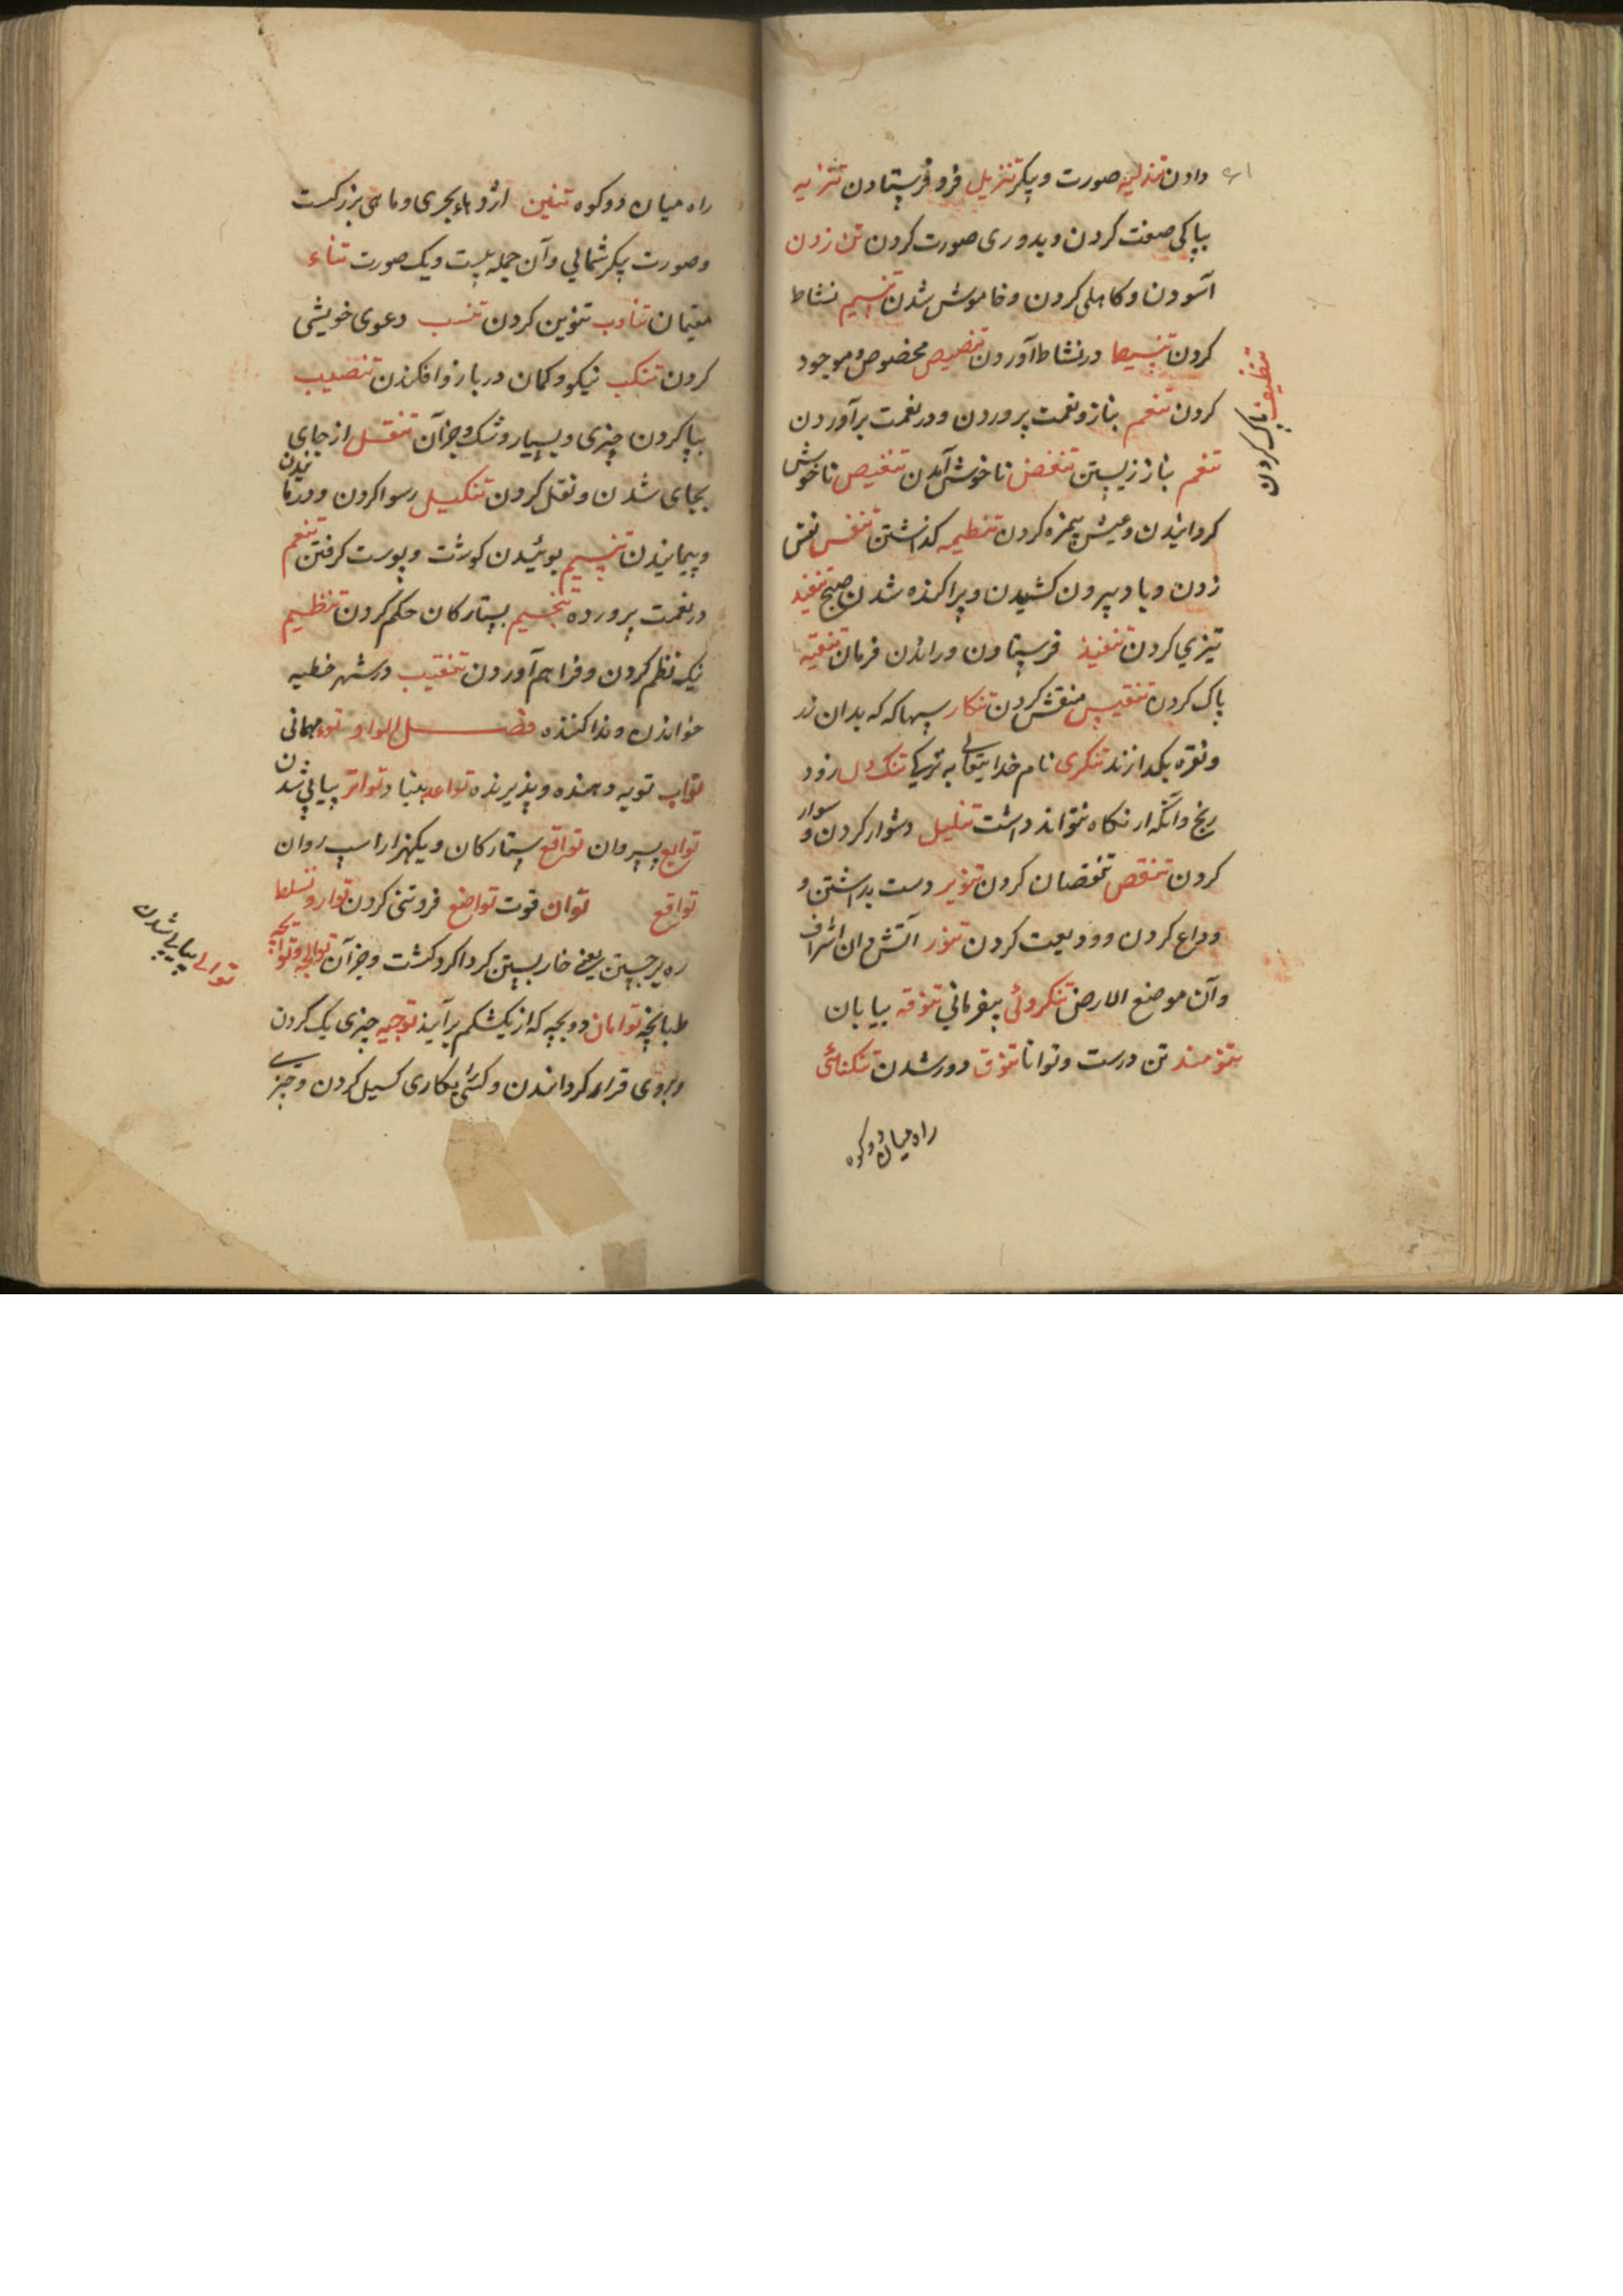 دادن تندلیه صورت و پیکر تنزیل فرو فرستادن تنزیه
بپاکی صفت کردن و بدوری صورت کردن تن زدن
آسودن و کاهلی کردن و خاموش شدن تنسیم نشاط
کردن تنسیط در نشاط آوردن تنصیص مخصوص و موجود
کردن تنعم بناز و نعمت پروردن و در نعمت برآوردن
تنظیف پاک کردن
تنعم بناز زیستن تنغض ناخوش آمدن تنغیص ناخوش
کردانیدن و عیش بیمزه کردن تنطیمه کذاشتن تنفس نفس
زدن و باد بیرون کشیدن و پراکنده شدن صبح تنفیذ
تیزی کردن تنفیذ فرستادن و راندن فرمان تنقیه
پاک کردن تنقیس منقش کردن تنکار سپهاکه که بدان زر
و نقره بکدازند تنکری نام خدایتعالی به ترکی تنک دل زود
رنج و آنکه راز نکاه نتواند داشت تنلیل دشوار کردن و سوار
کردن تنقص نقصان کردن تنویر دست بداشتن و
وداع کردن و ودیعت کردن تنور آتش دان اشراف
و آن موضع الارض تنکروئی بیفرمانی تنوقه بیابان
تنومند تن درست و توانا تنوق دور شدن تنکنائی
راه میان دو کوه
راه میان دو کوه تنین اژدهاء بحری و ماهی بزرکست
و صورت پیکر شمالی و آن جمله بیست و یک صورت تناء
مقیمان تناوب تنوین کردن تنسب دعوی خویشی
کردن تنکب نیکو و کمان در بازو افکندن تنصیب
بپا کردن چیزی و بسیار و شک و جزآن تنقل از جای
بجای شدن و نقل کردن تنکیل رسوا کردن و درماندن
و پیمانیدن تنسیم بوئیدن کوشت و پوست کرفتن تنعم
در نعمت پرورده تنجیم بستارکان حکم کردن تنظیم
نیک نظم کردن و فراهم آوردن تنقیب در شهر خطیه
خواندن و ندا کننده فصل الواو توء مهمانی
تواب توبه دهنده و پذیرنده تواعد بنیاد تواتر پیاپی شدن
توابع پسروان تواقع ستارکان و یکهزار اسب روان
تواقع توان قوت تواضع فروتنی کردن توارد تسلط
ره پرچین یعنی خار بستن کرداکرد کشت و جزآن توالجه و توابجه
توالی پیاپی شدن
طبانچه توامان دو بچه که از یکشکم برآیند توجیه چیزی یک کردن
و بروی قرار کردانیدن و کسی را بکاری کسیل کردن و چیزی